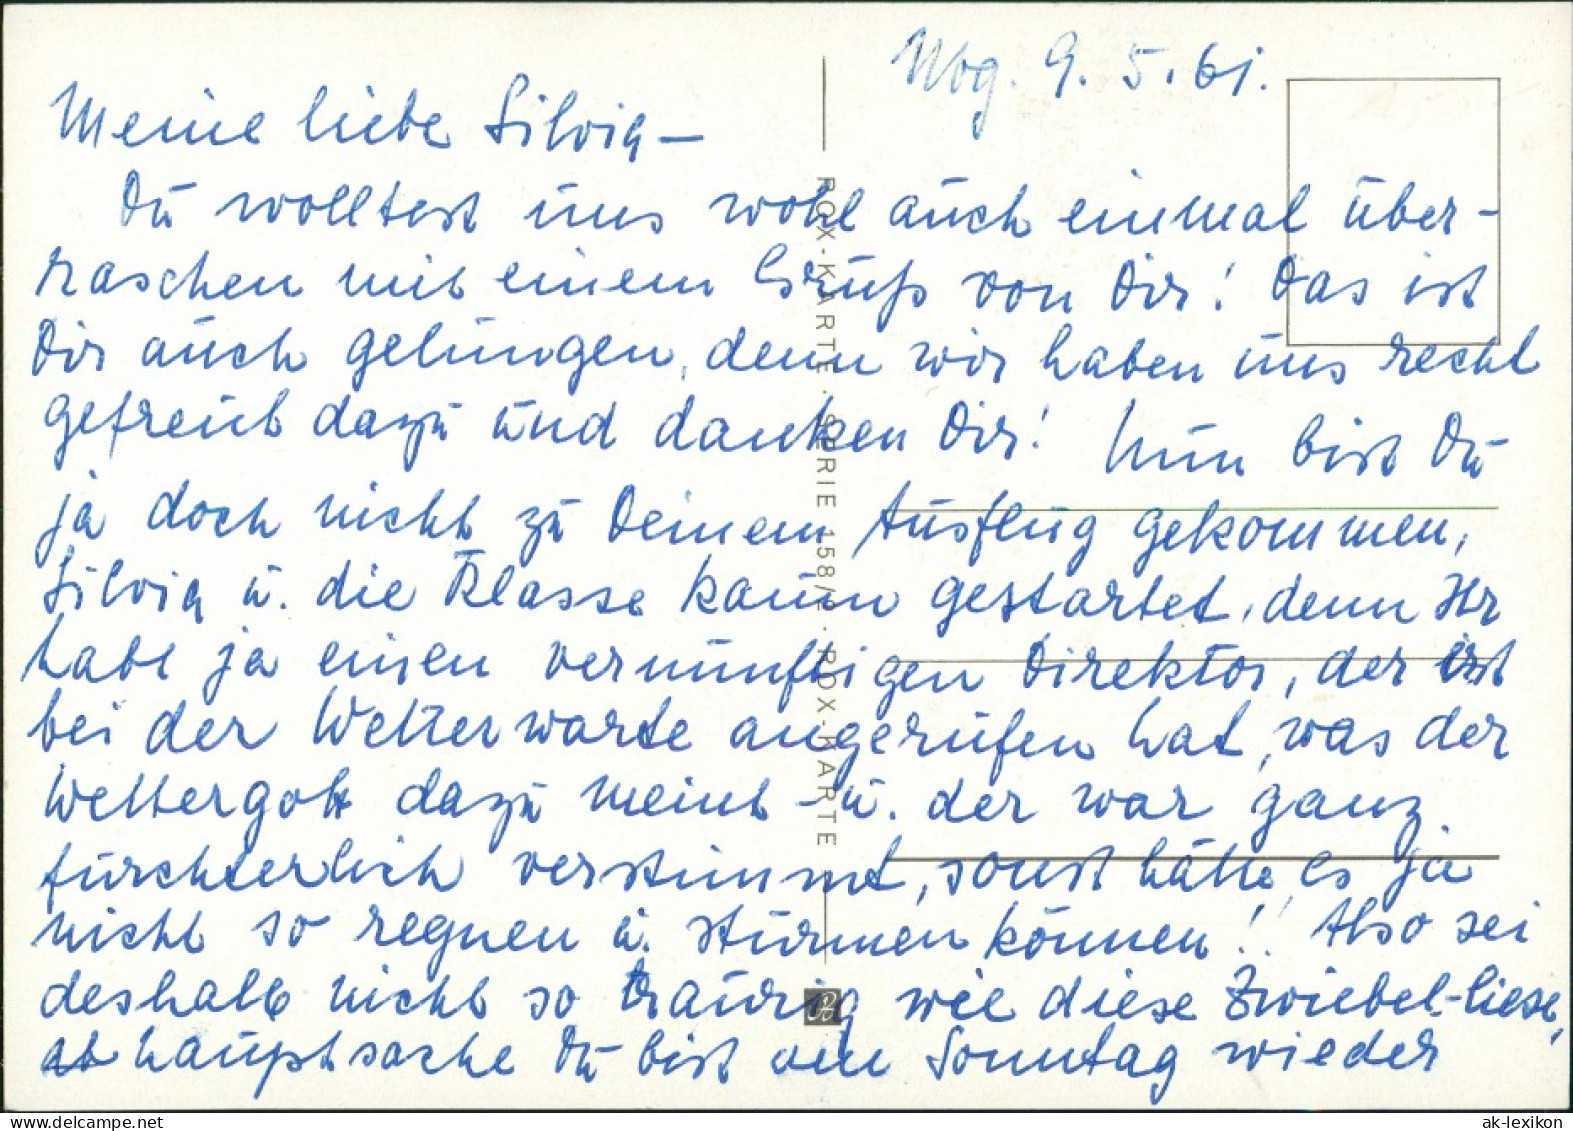 Mbg. 9.5.61.
Meine liebe Silvia –
Du wolltest uns wohl auch einmal über-
raschen mit einem Gruß von Dir! Das ist
Dir auch gelungen, denn wir haben uns recht
gefreut dazu und danken Dir! Nun bist Du
ja doch nicht zu Deinem Ausflug gekommen,
Silvia u. die Klasse kaum gestartet, denn Ihr
habt ja einen vernünftigen Direktor, der erst
bei der Wetterwarte angerufen hat, was der
Wettergott dazu meint – u. der war ganz
fürchterlich verstimmt, sonst hätte es ja
nicht so regnen u. stürmen können! Also sei
deshalb nicht so traurig wie diese Zwiebel-liese,
hauptsache Du bist am Sonntag wieder
ROX-KARTE · SERIE 158/2 · ROX-KARTE
ak-lexikon